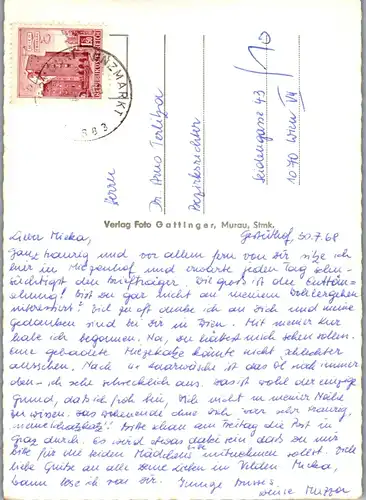 UNZMARKT
8 8 3
Herrn
Dr. Arno Terliza
Bezirksrichter
Seidengasse 43 /
1070 Wien VII
Verlag Foto Gattinger, Murau, Stmk.
30.7.68
Lieber Micka,
Ganz traurig und vor allem fern von Dir sitze ich
hier in und erwarte jeden Tag sehn-
süchtigst den Briefträger. Wie gross ist die Enttäu-
schung! Bist Du gar nicht an meinem Wohlergehen
interessiert? Viel zu oft denke ich an Dich und meine
Gedanken sind bei Dir in Wien. Mit meiner Kur
habe ich begonnen. Na, Du hättest mich sehen sollen.
Eine gebadete Miezekatze könnte nicht schlechter
aussehen. Nach der Haarwäsche ist das Öl noch immer
oben - ich sehe schrecklich aus. Das ist wohl der einzige
Grund, daß ich froh bin, Dich nicht in meiner Nähe
zu wissen. Das Wochenende ohne Dich war sehr traurig,
Bitte schau am Freitag die Post in
Graz durch. Es wird etwas dabei sein, daß Du mir
bitte für die beiden Mädchen mitnehmen sollst. Viele
liebe Grüße an alle Deine Lieben in Velden Micka,
Innige Bussi's
Deine Muzza